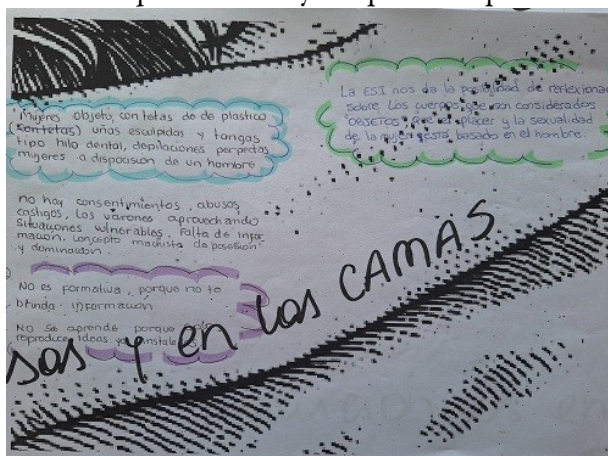 mujeres objeto, con tetas de de plastico
(son tetas) uñas esculpidas y tangas
tipo hilo dental, depilaciones perfectas
mujeres a disposicion de un hombre
La ESI nos da la posibilidad de reflexionar
sobre los cuerpos que son considerados
"OBJETOS" que el placer y la sexualidad
de la mujer esta basado en el hombre.
no hay consentimientos, abusos
castigos, los varones aprovechando
situaciones vulnerables. Falta de infor
macion. concepto machista de posesion
y dominacion.
NO es formativa, porque no te
brinda informacion
NO se aprende porque
reproduce ideas ya
sos y en las CAMAS